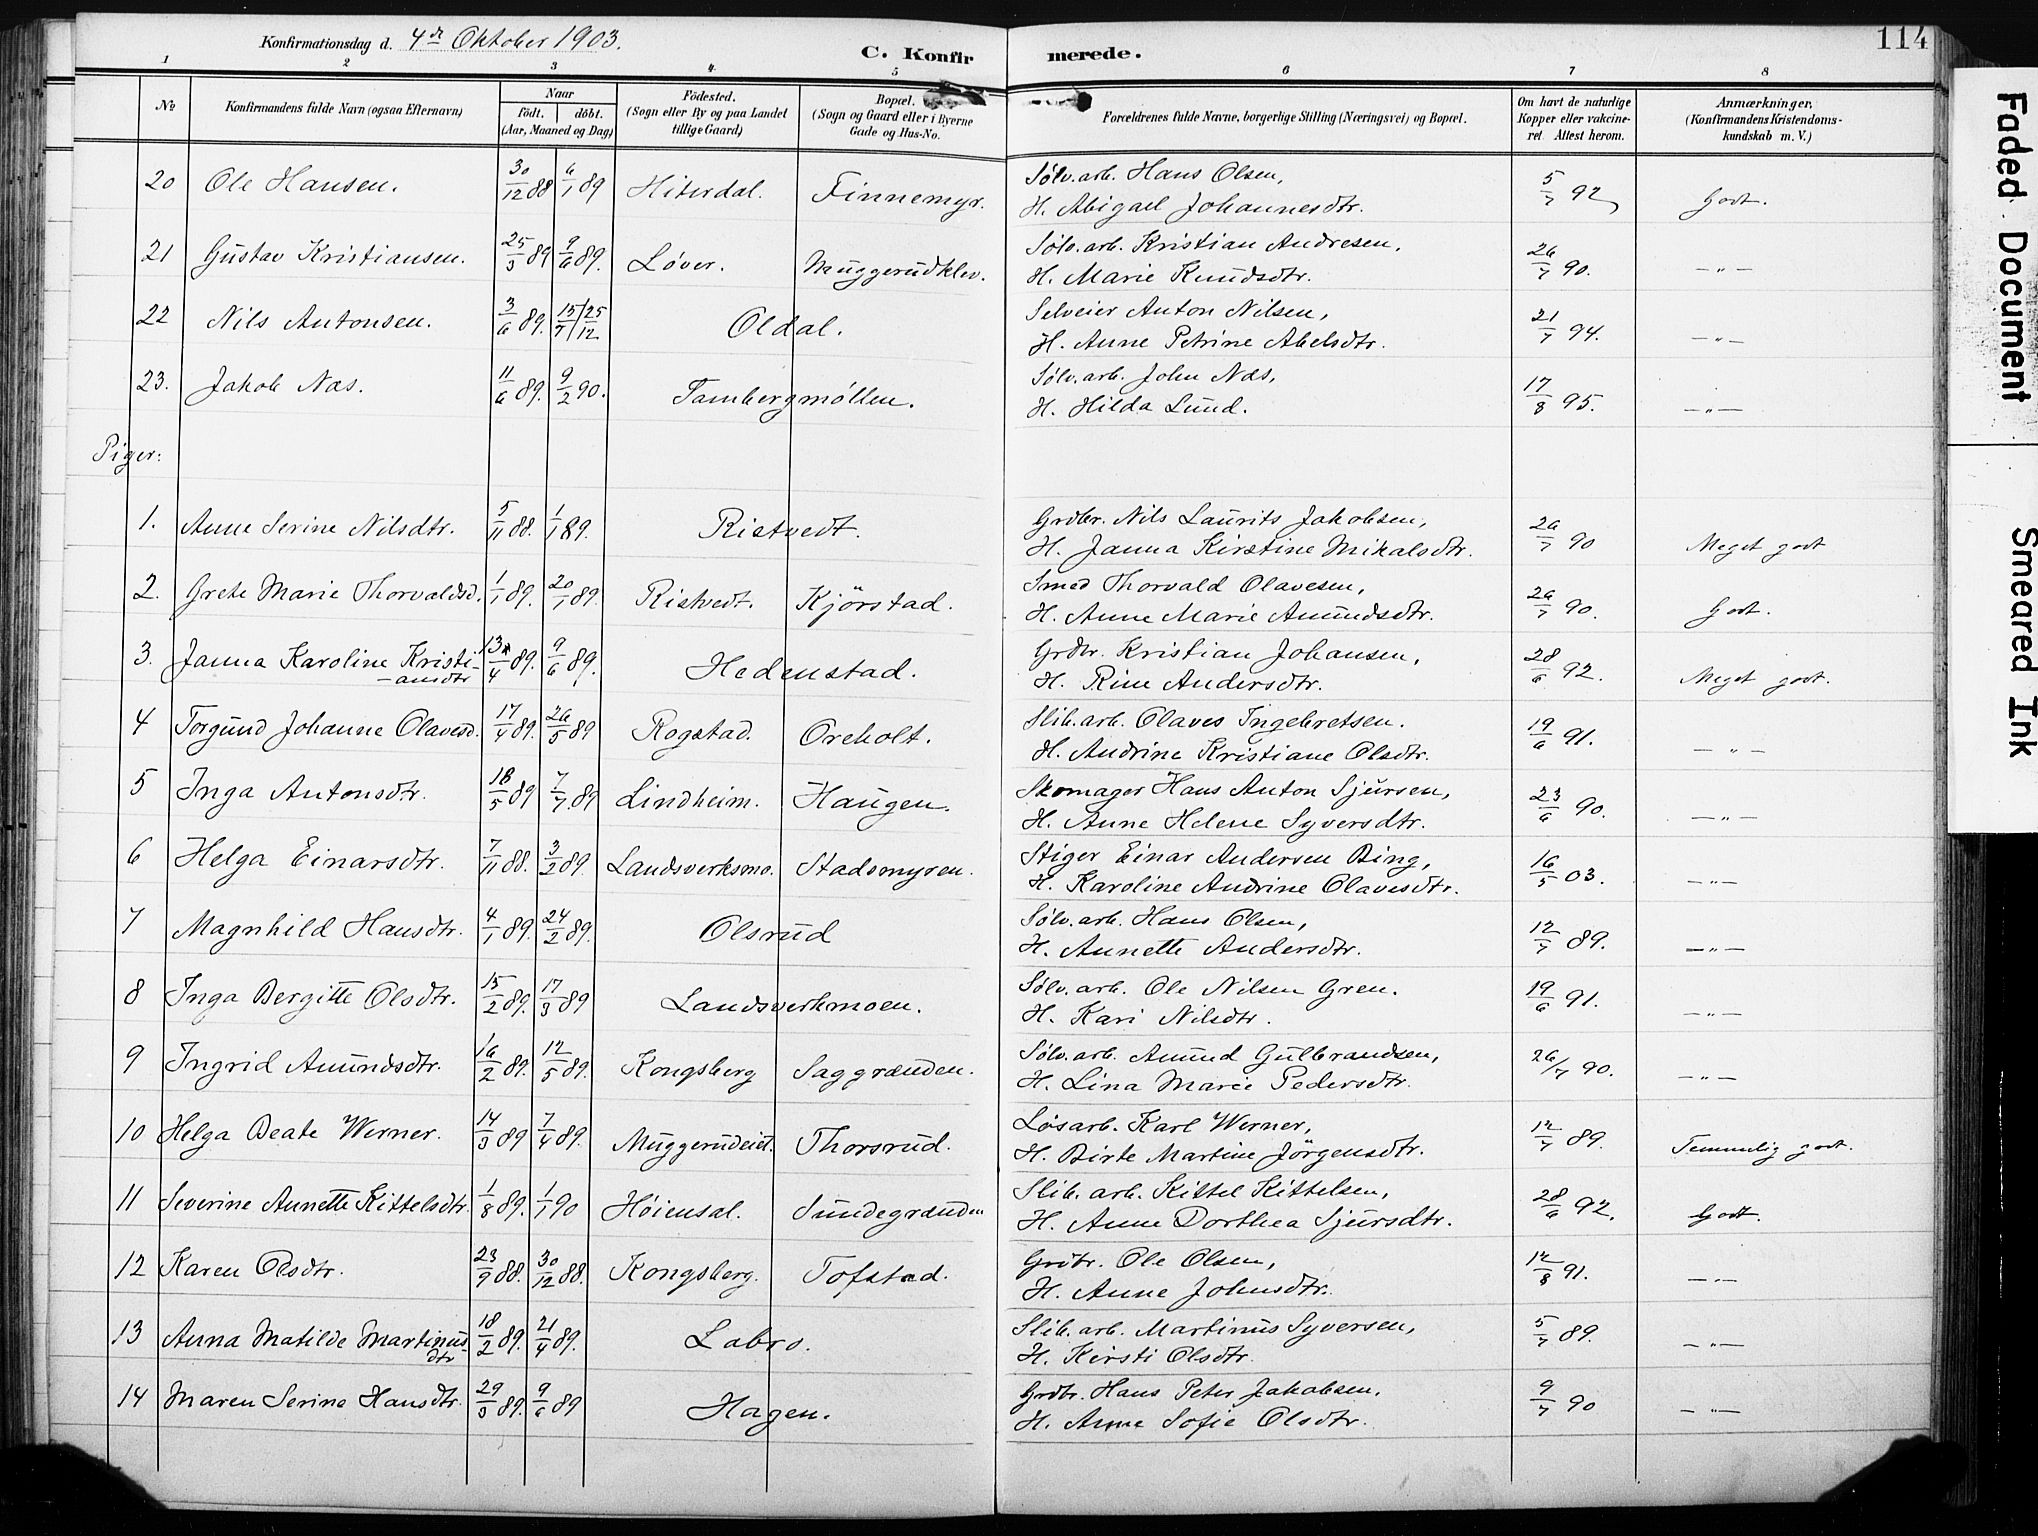 114
Konfirmationsdag d. 4de Oktober 1903.
C. Konfir merede.
1 2 3 4 5 6 7 8
No Konfirmandens fulde Navn (ogsaa Efternavn) Naar födt. döbt. (Aar, Maaned og Dag) Födested. (Sogn eller By og paa Landet tillige Gaard) Bopæl. (Sogn og Gaard eller i Byerne Gade og Hus-No. Forældrenes fulde Navne, borgerlige Stilling (Næringsvei) og Bopæl. Om havt de naturlige Kopper eller vakcineret Attest herom. Anmærkninger, (Konfirmandens Kristendomskundskab m. V.)
20 Ole Hansen. 30/12 88 6/1 89 Hiterdal. Finnemyr. Sølv.arb. Hans Olsen, 5/7 92 Godt.
H. Abigael Johannesdtr.
21 Gustav Kristiansen. 25/3 89 9/6 89. Løver. Muggerudklev. Sølv.arb. Kristian Andresen, 26/7 90. —"—
H. Marie Knudsdtr.
22 Nils Antonsen. 3/6 89. 15/7 / 25/12 Oldal. Selveier Anton Nilsen, 21/7 94. —"—
H. Anne Petrine Abelsdtr.
23. Jakob Næs. 11/6 89. 9/2 90. Tambergmøllen. Sølv.arb. John Næs, 17/8 95. —"—
H. Hilda Lund.
Piger:
1. Anne Serine Nilsdtr. 5/11 88. 1/1 89. Ristvedt. Grdbr. Nils Laurits Jakobsen, 26/7 90 Meget godt
H. Janna Kirstine Mikalsdtr.
2. Grete Marie Thorvaldsd. 1/1 89. 20/1 89. Ristvedt. Kjörstad. Smed Thorvald Olavesen, 26/7 90. Godt.
H. Anne Marie Amundsdtr.
3. Janna Karoline Kristi- 13/4 89. 9/6 89. Hedenstad. Grdbr. Kristian Johansen, 28/6 92. Meget godt.
-ansdtr H. Rine Andersdtr.
4 Torgund Johanne Olavesd. 17/4 89. 26/5 89 Rogstad. Oreholt. Slib.arb. Olaves Ingebretsen. 19/6 91. —"—
H. Andrine Kristiane Olsdtr.
5 Inga Antonsdtr. 18/5 89 7/7 89 Lindheim. Haugen. Skomager Hans Anton Sjursen, 23/6 90. —"—
H. Anne Helene Syversdtr.
6 Helga Einarsdtr. 7/11 88. 3/2 89. Landsverksmo. Stadsmyren. Stiger Einar Andersen Bing, 16/5 03. —"—
H. Karoline Andrine Olavesdtr.
7 Magnhild Hansdtr. 4/1 89. 24/2 89. Olsrud Sølv.arb. Hans Olsen, 12/7 89. —"—
H. Annette Andersdtr.
8 Inga Bergitte Olsdtr. 15/2 89. 17/3 89 Landsverkmoen. Sølv.arb. Ole Nilsen Gren. 19/6 91. —"—
H. Kari Nilsdtr.
9 Ingrid Amundsdtr. 16/2 89. 12/5 89. Kongsberg Saggrænden. Sølv.arb. Amund Gulbrandsen, 26/7 90. —"—
H. Lina Marie Pedersdtr.
10 Helga Beate Werner. 14/3 89 7/4 89. Muggerudeiet. Thorsrud. Løsarb. Karl Werner, 12/7 89. Temmelig godt.
H. Birte Martine Jörgensdtr.
11 Severine Annette Kittelsdtr. 1/8 89. 1/1 90 Høiensal. Sundegrænden Slib. arb. Kittel Kittelsen, 28/6 92. Godt.
H. Anne Dorthea Sjursdtr.
12 Karen Olsdtr. 23/9 88. 30/12 88. Kongsberg. Tofstad. Grdbr. Ole Olsen, 12/8 91. —"—
H. Anne Johnsdtr.
13 Anna Matilde Martinus- 18/2 89. 21/4 89. Labro. Slib.arb. Martinus Syversen, 5/7 89. —"—
dtr H. Kirsti Olsdtr.
14 Maren Serine Hansdtr. 29/3 89. 9/6 89 Hagen. Grdbr. Hans Peter Jakobsen, 9/7 90 —"—
H. Anne Sofie Olsdtr.
Faded Document
Smeared Ink